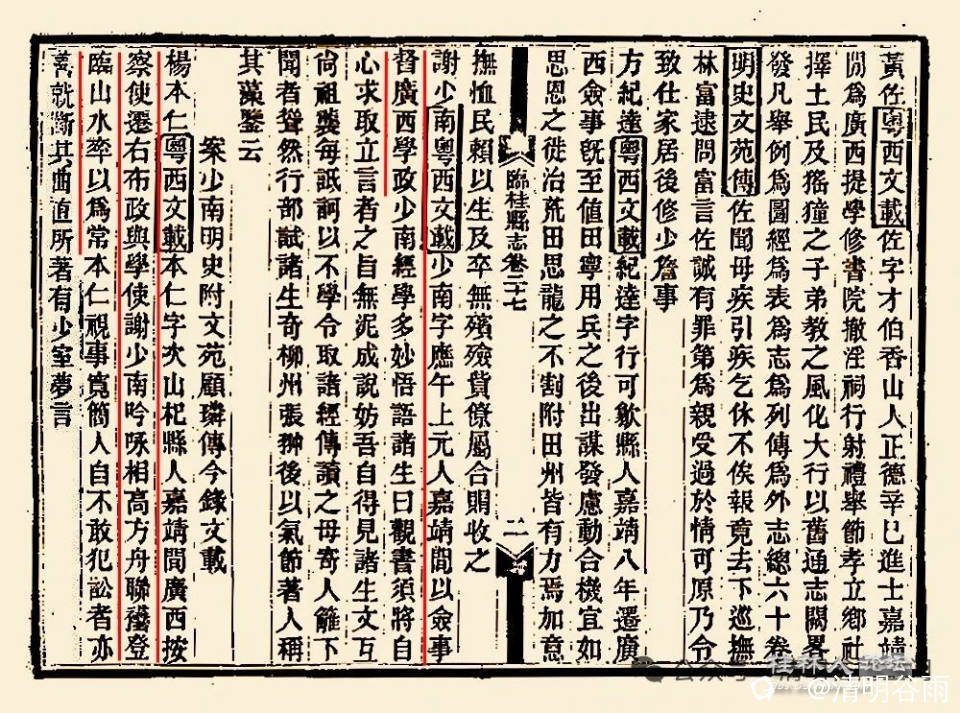 黃佐粵西文載佐字才伯香山人正德辛巳進士嘉靖
間爲廣西提學修書院撤淫祠行射禮舉節孝立鄉社
擇土民及猺獞之子弟敎之風化大行以舊通志闕畧
發凡舉例爲圖經爲表爲志爲列傳爲外志總六十卷
明史文苑傳佐聞母疾引疾乞休不俟報竟去下巡撫
林富逮問富言佐誠有罪第爲親受過於情可原乃令
致仕家居後修少詹事
方紀達粵西文載紀達字行可歙縣人嘉靖八年遷廣
西僉事旣至值田寧用兵之後出謀發慮動合機宜如
思恩之徙治荒田思龍之不割附田州皆有力焉加意
臨桂縣志卷二十七
二
撫恤民賴以生及卒無殯殮貲僚屬合賻收之
謝少南粵西文載少南字應午上元人嘉靖間以僉事
督廣西學政少南經學多妙悟語諸生曰觀書須將自
心求取立言者之旨無泥成說妨吾自得見諸生文互
尙祖襲每詆訶以不學令取諸經傳讀之毋寄人籬下
聞者聳然行部試諸生奇柳州張翀後以氣節著人稱
其藻鑒云
案少南明史附文苑顧璘傳今錄文載
楊本仁粵西文載本仁字次山杞縣人嘉靖間廣西按
察使遷右布政與學使謝少南吟咏相高方舟聯鑣登
臨山水率以爲常本仁視事寬簡人自不敢犯訟者亦
喜就斷其曲直所著有少室夢言
桂林人论坛
公众号
@清明谷雨